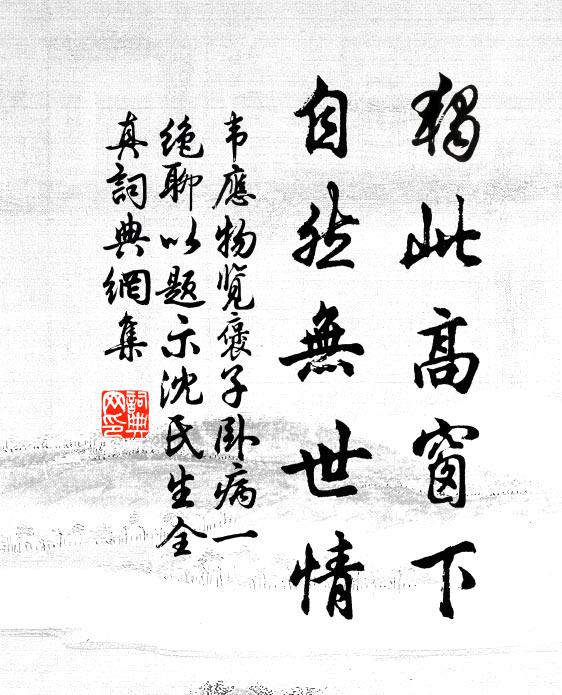 獨此高窗下
自然無世情
韦應物览褒子卧病一
絶聊以题示沈氏生全
真詞典網集
詞典网印